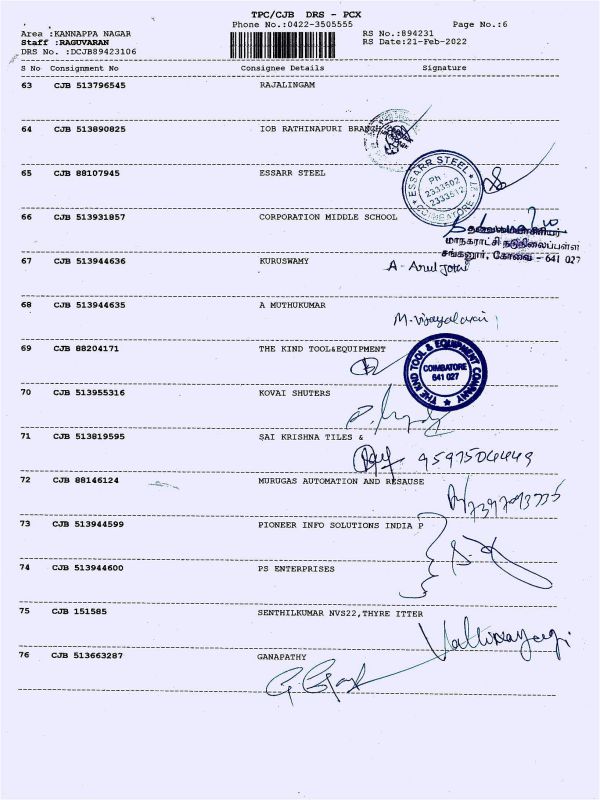 TPC/CJB DRS - PCX
Phone No.:0422-3505555 Page No.:6
Area :KANNAPPA NAGAR RS No.:894231
Staff :RAGUVARAN RS Date:21-Feb-2022
DRS No. :DCJB89423106
S No Consignment No Consignee Details Signature
63 CJB 513796545 RAJALINGAM
64 CJB 513890825 IOB RATHINAPURI BRANCH
65 CJB 88107945 ESSARR STEEL
ESSARR STEEL
Ph :
2333502
2333512
COIMBATORE - 27
66 CJB 513931857 CORPORATION MIDDLE SCHOOL
தலைமையாசிரியர்
மாநகராட்சி நடுநிலைப்பள்ளி
சங்கனூர், கோவை - 641 027
67 CJB 513944636 KURUSWAMY
A. Arul Jothi
68 CJB 513944635 A MUTHUKUMAR
69 CJB 88204171 THE KIND TOOL&EQUIPMENT
THE KIND TOOL & EQUIPMENT COMPANY
COIMBATORE
641 027
70 CJB 513955316 KOVAI SHUTERS
71 CJB 513819595 SAI KRISHNA TILES &
72 CJB 88146124 MURUGAS AUTOMATION AND RESAUSE
73 CJB 513944599 PIONEER INFO SOLUTIONS INDIA P
74 CJB 513944600 PS ENTERPRISES
75 CJB 151585 SENTHILKUMAR NVS22,THYRE ITTER
76 CJB 513663287 GANAPATHY